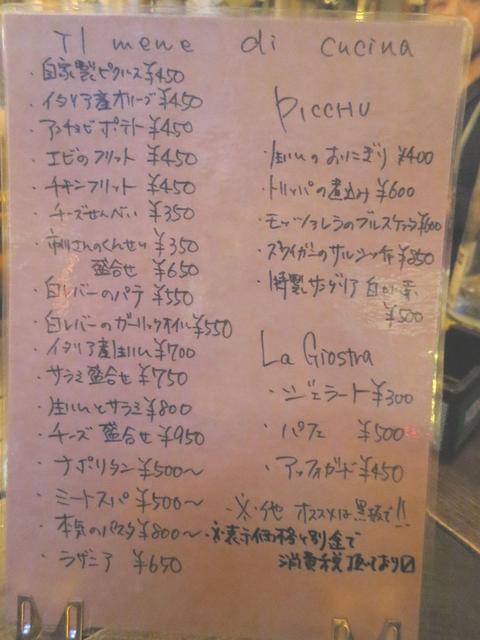 Il mene di cucina
・自家製ピクルス ¥450
・イタリア産オリーブ ¥450
・アンチョビポテト ¥450
・エビのフリット ¥450
・チキンフリット ¥450
・チーズせんべい ¥350
・市川さんのくんせい ¥350
盛合せ ¥650
・白レバーのパテ ¥550
・白レバーのガーリックオイル ¥550
・イタリア産生ハム ¥700
・サラミ盛合せ ¥750
・生ハムとサラミ ¥800
・チーズ盛合せ ¥950
・ナポリタン ¥500〜
・ミートスパ ¥500〜
・本気のパスタ ¥800〜
・ラザニア ¥650
PICCHU
・生ハムのおにぎり ¥400
・トリッパの煮込み ¥600
・モッツァレラのブルスケッタ ¥600
・ズワイガニのサルシッチャ ¥850
・特製サングリア 白or赤
¥500
La Giostra
・ジェラート ¥300
・パフェ ¥500
・アッフォガード ¥450
・※・他 オススメは黒板で!!
・※表示価格と別途で
消費税頂いております